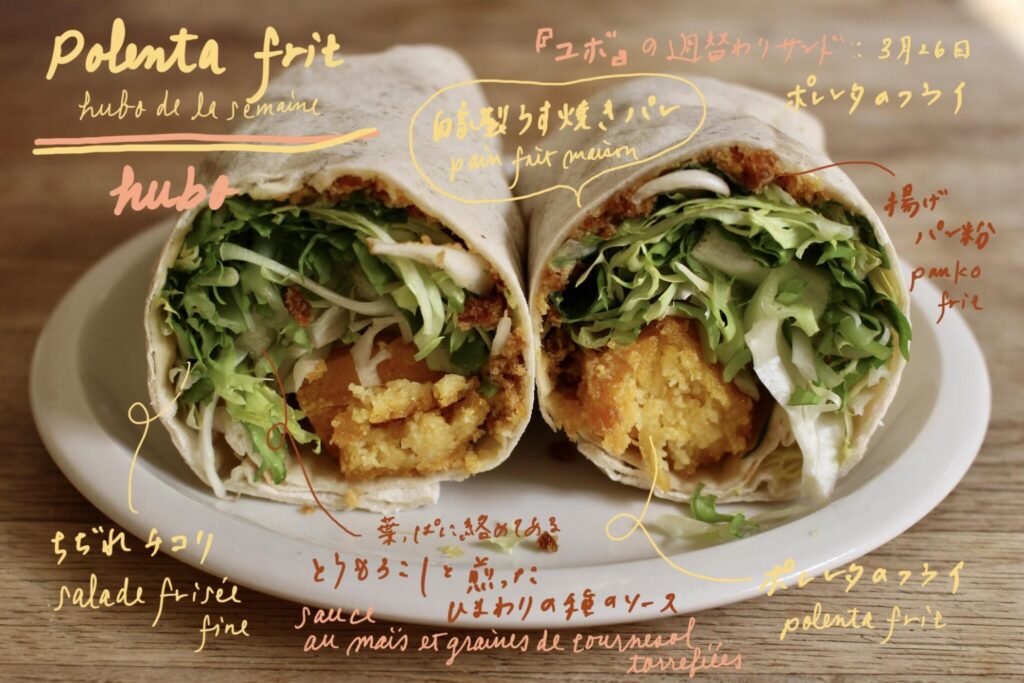 Polenta frit
hubo de la semaine
hubo
『ユボ』の週替わりサンド：3月26日
ポレンタのフライ
自家製うす焼きパン
pain fait maison
揚げ
パン粉
panko
frit
ちぢれチコリ
salade frisée
fine
葉っぱに絡めてある
とうもろこしと煎った
ひまわりの種のソース
sauce
au maïs et graines de tournesol
torréfiées
ポレンタのフライ
polenta frit